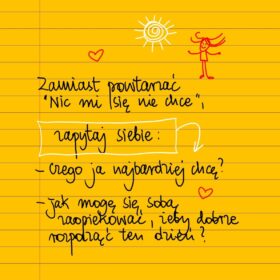 Zamiast powtarzać
"Nic mi się nie chce",
zapytaj siebie:
- Czego ja najbardziej chcę?
- Jak mogę się sobą
zaopiekować, żeby dobrze
rozpocząć ten dzień?